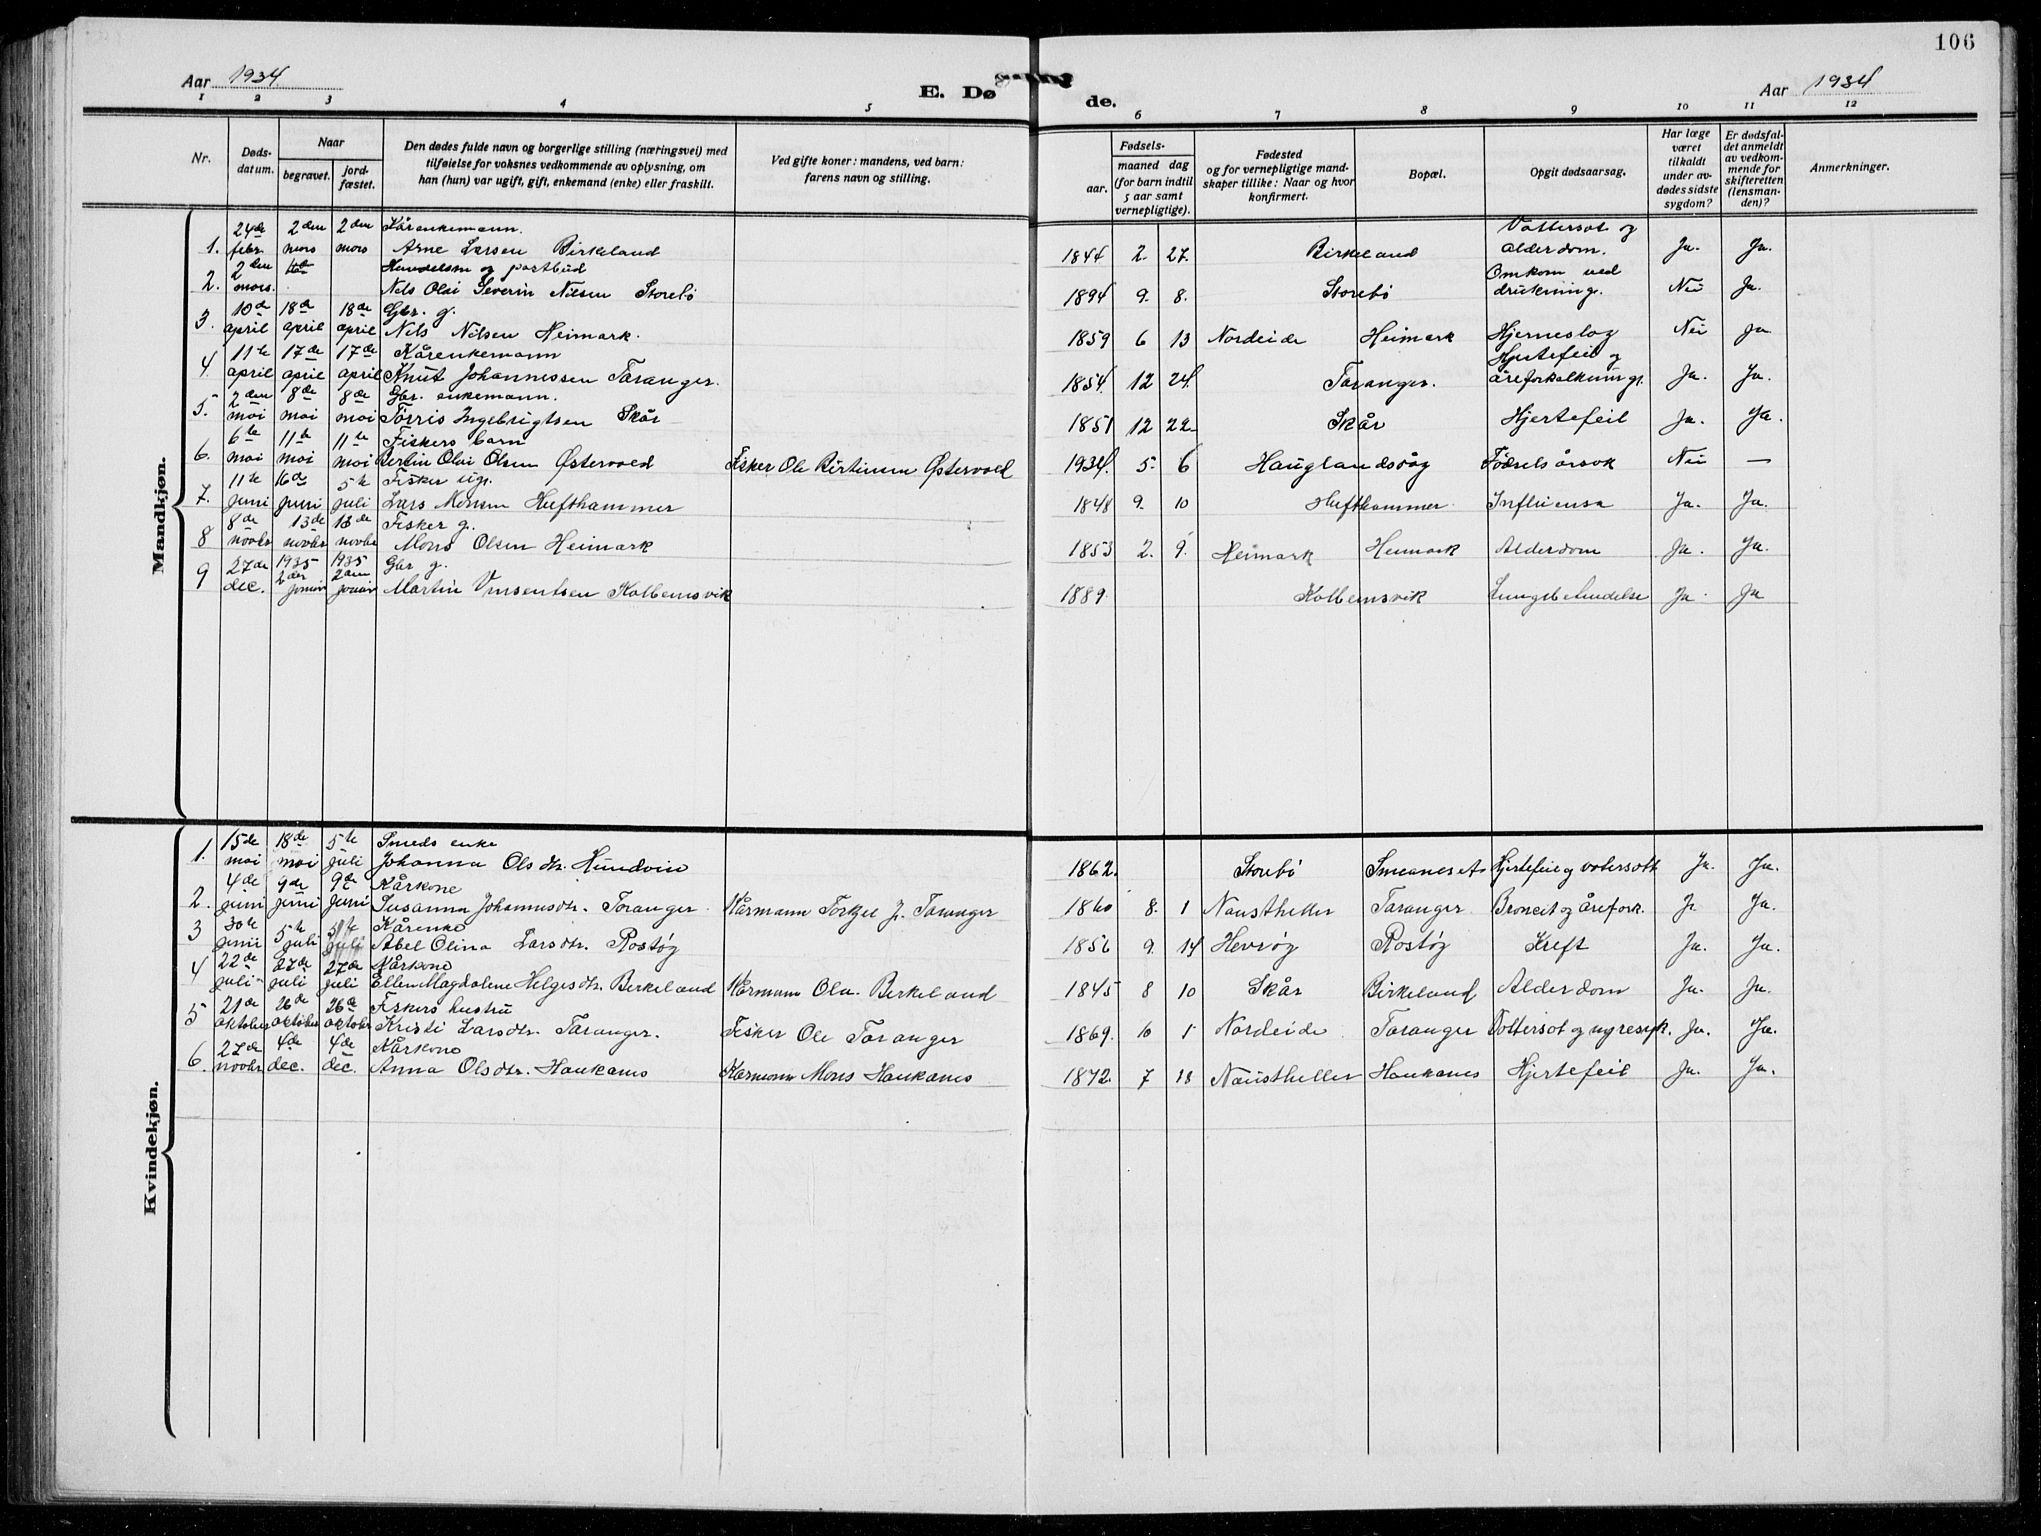 106
Aar 1934
E. Døde.
Aar 1934
1 2 3 4 5 6 7 8 9 10 11 12
Nr.
Døds-
datum.
Naar
begravet.
jord-
fæstet.
Den dødes fulde navn og borgerlige stilling (næringsvei) med
tilføielse for voksnes vedkommende av oplysning, om
han (hun) var ugift, gift, enkemand (enke) eller fraskilt.
Ved gifte koner: mandens, ved barn:
farens navn og stilling.
Fødsels-
aar.
maaned dag
(for barn indtil
5 aar samt
vernepligtige).
Fødested
og for vernepligtige mand-
skaper tillike: Naar og hvor
konfirmert.
Bopæl.
Opgit dødsaarsag.
Har læge
været
tilkaldt
under av-
dødes sidste
sygdom?
Er dødsfal-
det anmeldt
av vedkom-
mende for
skifteretten
(lensman-
den)?
Anmerkninger.
Mandkjøn.
24de 2den 2den Kårenkemann. Vattersot og
1. febr. mars mars Arne Larsen Birkeland 1844 2. 27. Birkeland alderdom. Ja. Ja.
2den Handelsm og postbud Omkom ved
2. mars. Nels Olai Severin Nilsen Storebø 1894 9. 8. Storebø drukning. Nei Ja.
10de 18de 18de Gbr. g.
3. april april april Nels Nilsen Heimark. 1859 6 13 Nordeide Heimark Hjerneslag Nei Ja
11te 17de 17de Kårenkemann Hjertefeil og
4. april april april Knut Johannessen Taranger. 1854. 12 24. Taranger. åreforkalkning. Ja. Ja.
2den 8de 8de Gbr. enkemann.
5. mai mai mai Torris Ingebrigtsen Skår 1851 12 22 Skår Hjertefeil Ja. Ja.
6te 11te 11te Fiskers barn
6. mai mai mai Bertin Olai Olsen Østervold Fisker Ole Bertinsen Østervold 1934. 5. 6 Hauglandsvåg Fødselsårsak Nei —
11te 16de 5te Fisker ug.
7. juni juni juli Lars Monsen Hufthammer 1848 9. 10 Hufthammer Influensa Ja. Ja.
8de 13de 13de Fisker g.
8 novbr novbr novbr Mons Olsen Heimark 1853 2. 9. Heimark Heimark Alderdom Ja. Ja.
27de 1935 1935 Gbr g.
9 dec. 2den januar 2den januar Martin Vinsentsen Kolbeinsvik 1889. Kolbeinsvik Lungebetendelse Ja. Ja
Kvindekjøn.
15de 18de 5te Smeds enke
1. mai mai juli Johanna Olsdtr. Hundvin 1862. Storebø Hjertefeil og vatersott Ja. Ja.
4de 9de 9de Kårkone
2. juni juni juni Susanna Johannesdtr. Taranger Kårmann Torkjel J. Taranger 1860 8. 1 Naustheller Taranger Broncit og årefork. Ja Ja.
30te 5te Kårenke
3 juni juli juli Abel Olina Larsdtr. Rostøy 1856 9. 14 Hevrøy Rostøy Kreft Ja. Ja.
22de 27de 27de Kårkone
4 juli juli juli Ellen Magdalene Helgesdtr. Birkeland Kårmann Ola Birkeland 1845 8 10 Skår Birkeland Alderdom Ja. Ja.
21de 26de 26de Fiskers hustru
5 oktober oktober oktober Kristi Larsdtr. Taranger. Fisker Ole Taranger 1869. 10 1 Nordeide Taranger Vattersot og nyresyk. Ja. Ja.
27de 4de 4de Kårkone
6. novbr dec. dec. Anna Olsdtr. Haukanes Kårmann Mons Haukanes 1872. 7 18 Naustheller Haukanes Hjertefeil Ja. Ja.